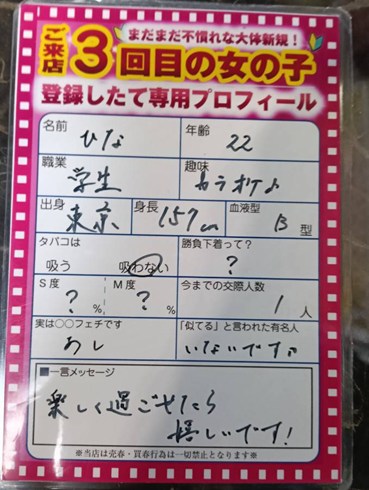 まだまだ不慣れな大体新規!
ご来店3回目の女の子
登録したて専用プロフィール
名前 ひな 年齢 22
職業 学生 趣味 カラオケ♪
出身 東京 身長 157cm 血液型 B型
タバコは 勝負下着って?
吸う 吸わない ?
S度 M度 今までの交際人数
? % ? % 1人
実は〇〇フェチです 「似てる」と言われた有名人
あし いないです。
■一言メッセージ
楽しく過ごせたら
嬉しいです!
※当店は売春・買春行為は一切禁止となります※